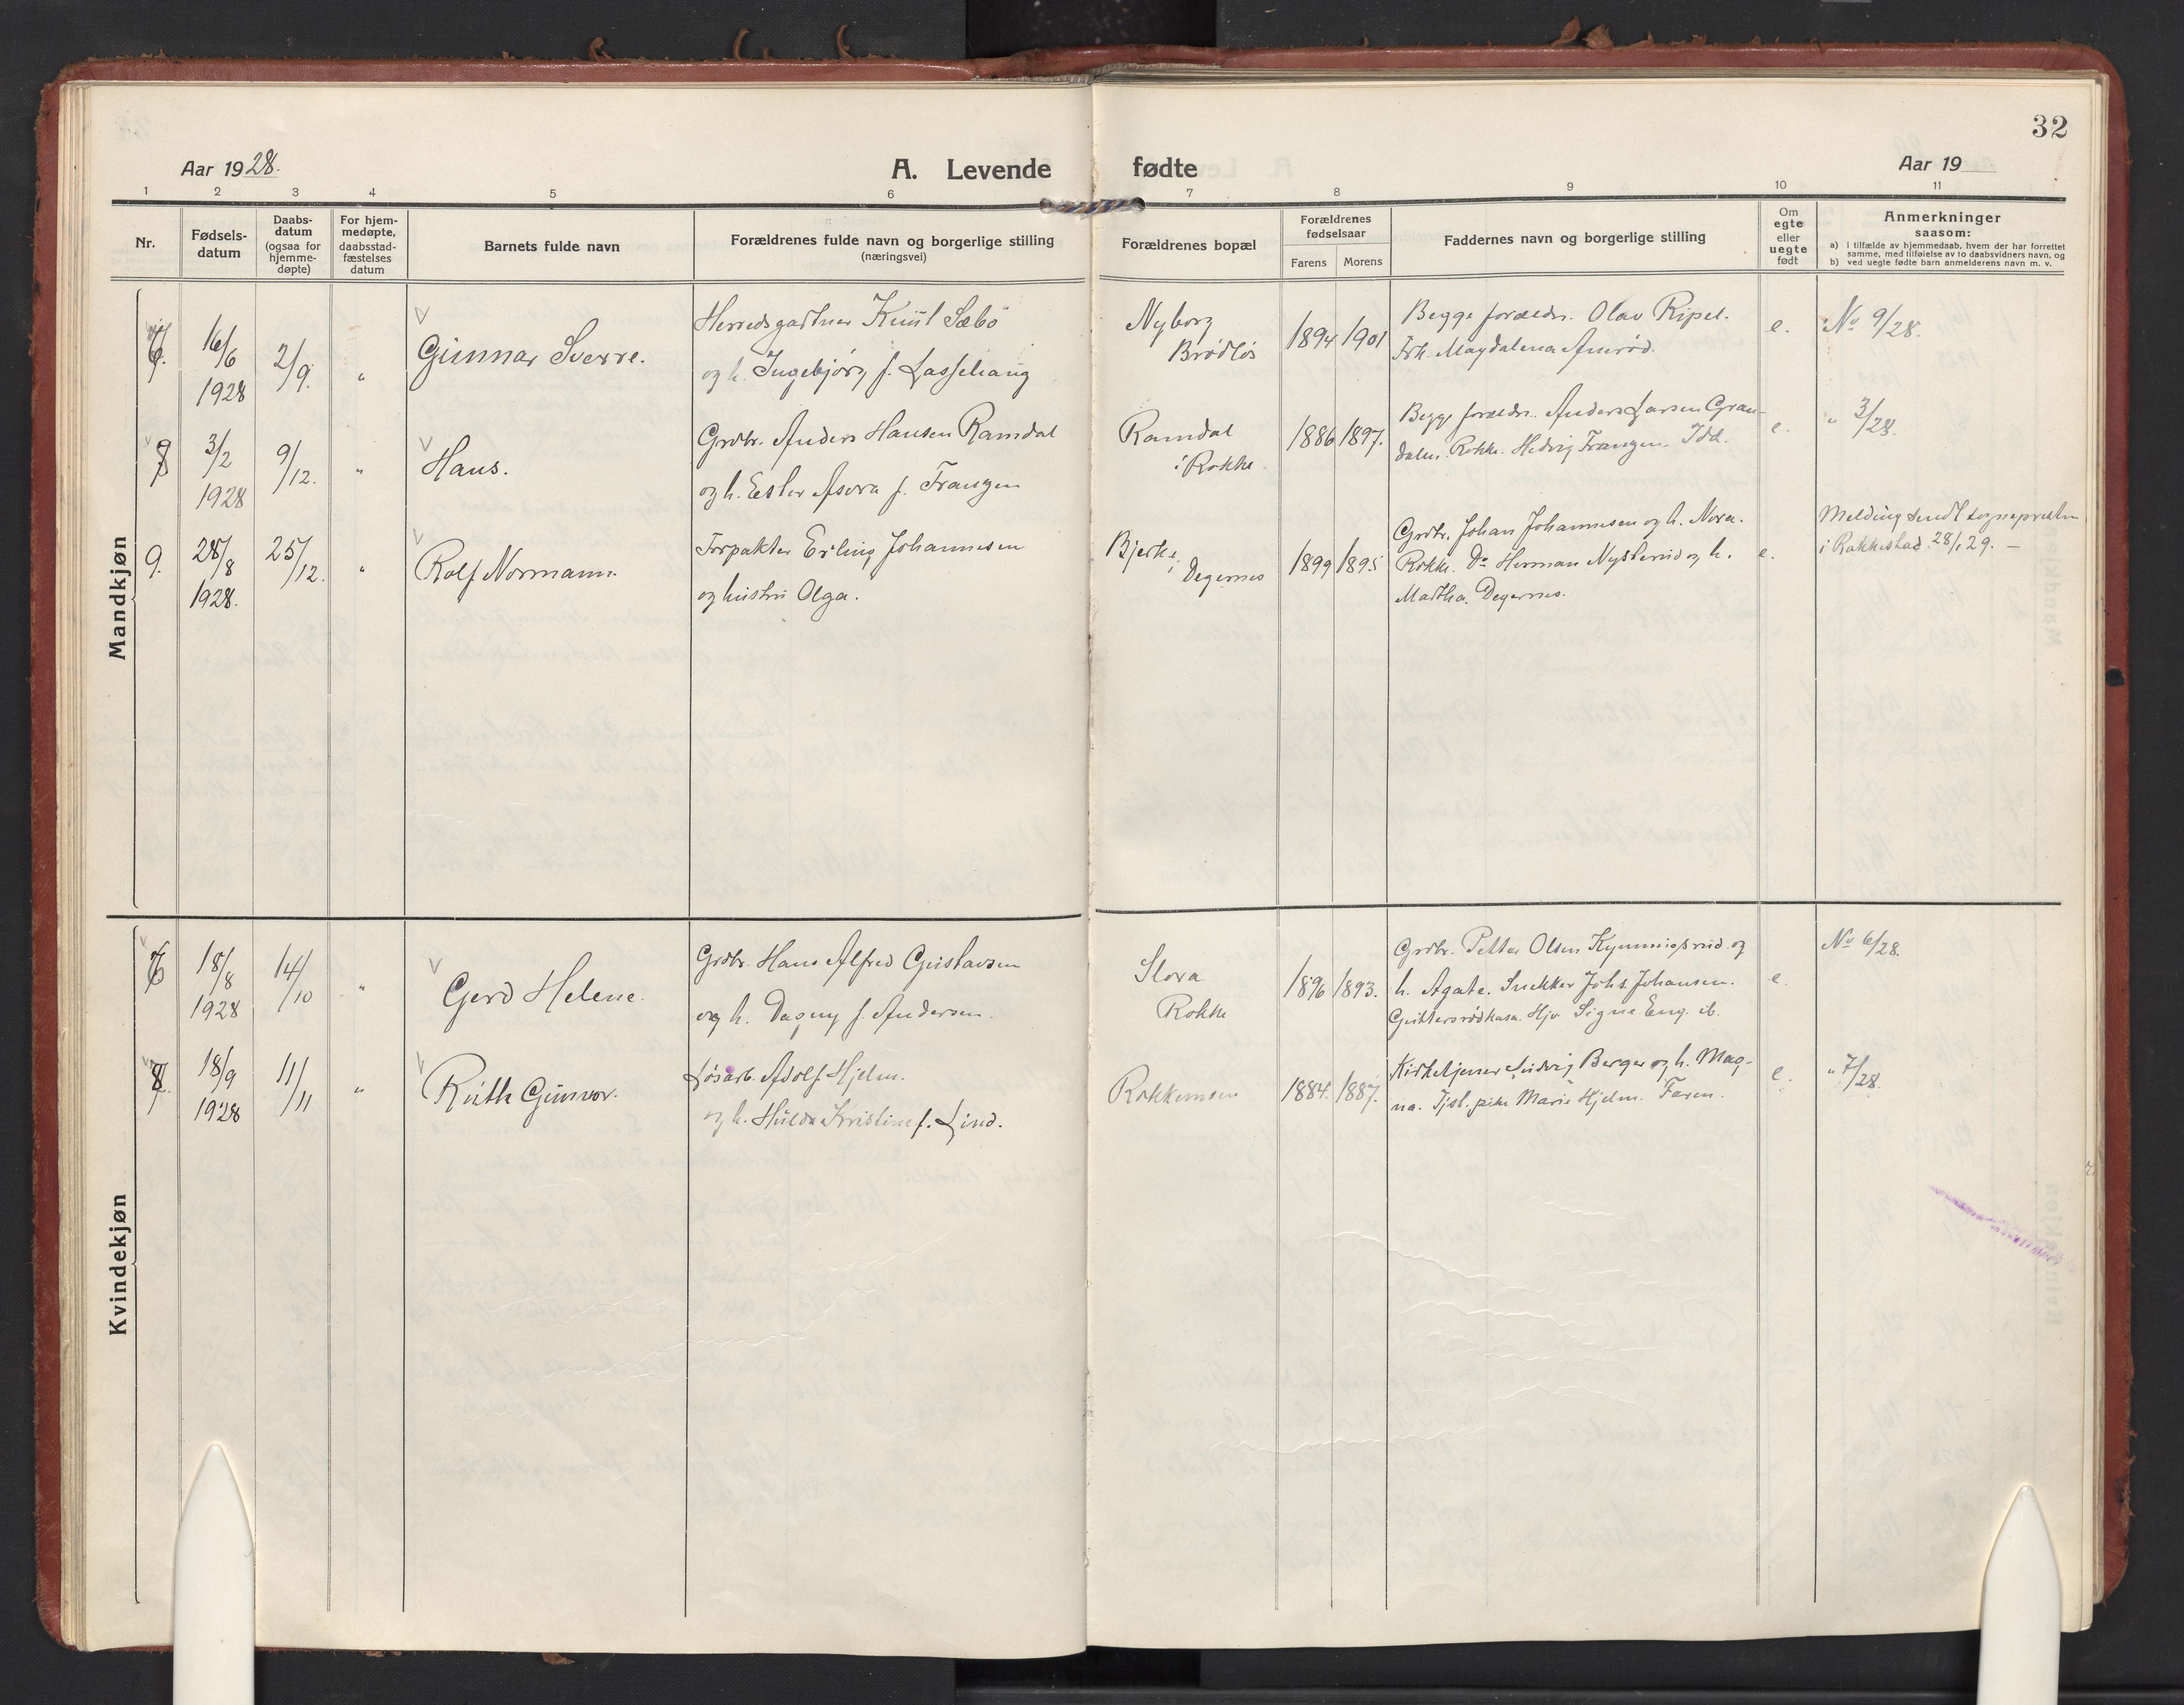 32
Aar 1928.
A. Levende fødte
Aar 19
1 2 3 4 5 6 7 8 9 10 11
Nr.
Fødsels-
datum
Daabs-
datum
(ogsaa for
hjemme-
døpte)
For hjem-
medøpte,
daabsstad-
fæstelses
datum
Barnets fulde navn
Forældrenes fulde navn og borgerlige stilling
(næringsvei)
Forældrenes bopæl
Forældrenes
fødselsaar
Farens Morens
Faddernes navn og borgerlige stilling
Om
egte
eller
uegte
født
Anmerkninger
saasom:
a) i tilfælde av hjemmedaab, hvem der har forrettet
samme, med tilføielse av to daabsvidners navn, og
b) ved uegte fødte barn anmelderens navn m. v.
Mandkjøn
7.
16/6
1928
2/9.
"
Gunnar Sverre.
Herredsgartner Knut Sæbö
og h. Ingebjörg f.
Nyborg
Brödlös
1894 1901
Begge forældr. Olav Ripel.
Frk. Magdalena
e.
No 9/28.
8
3/2
1928
9/12.
"
Hans.
Grdbr. Anders Hansen Ramdal
og h. Ester f. Frangen
Ramdal
i Rokke.
1886 1897.
Begge forældr. Anders Larsen Gran-
dalen. Rokke. Hedvig Frangen. Idd.
e.
" 3/28.
9.
28/8
1928.
25/12.
"
Rolf Normann.
Forpakter Erling Johannesen
og hustru Olga.
Bjerke,
Degernes
1899 1895
Grdbr. Johan Johannesen og h. Nora.
Rokke. Do Herman Nysterud og h.
Martha. Degernes.
e.
Melding sendt sognepresten
i Rakkestad 28/1 29. —
Kvindekjøn
18/8
1928
14/10
"
Gerd Helene.
Grdbr. Hans Alfred Gustavsen
og h. Dagny f. Andersen.
Slora
Rokke
1896 1893.
Grdbr. Petter Olsen og
h. Agate. Snekker Johs. Johansen.
Hjv. Signe Eng. ib.
e.
No 6/28.
18/9
1928
11/11
"
Ruth Gunvor.
Løsarb. Adolf Hjelm.
og h. Hulda Kristine f. Lind.
Rokkemoen
1884. 1887.
Kirketjener Ludvig Berger og h. Mag-
na. Tjst. pike Marie Hjelm. Faren.
e.
" 7/28.